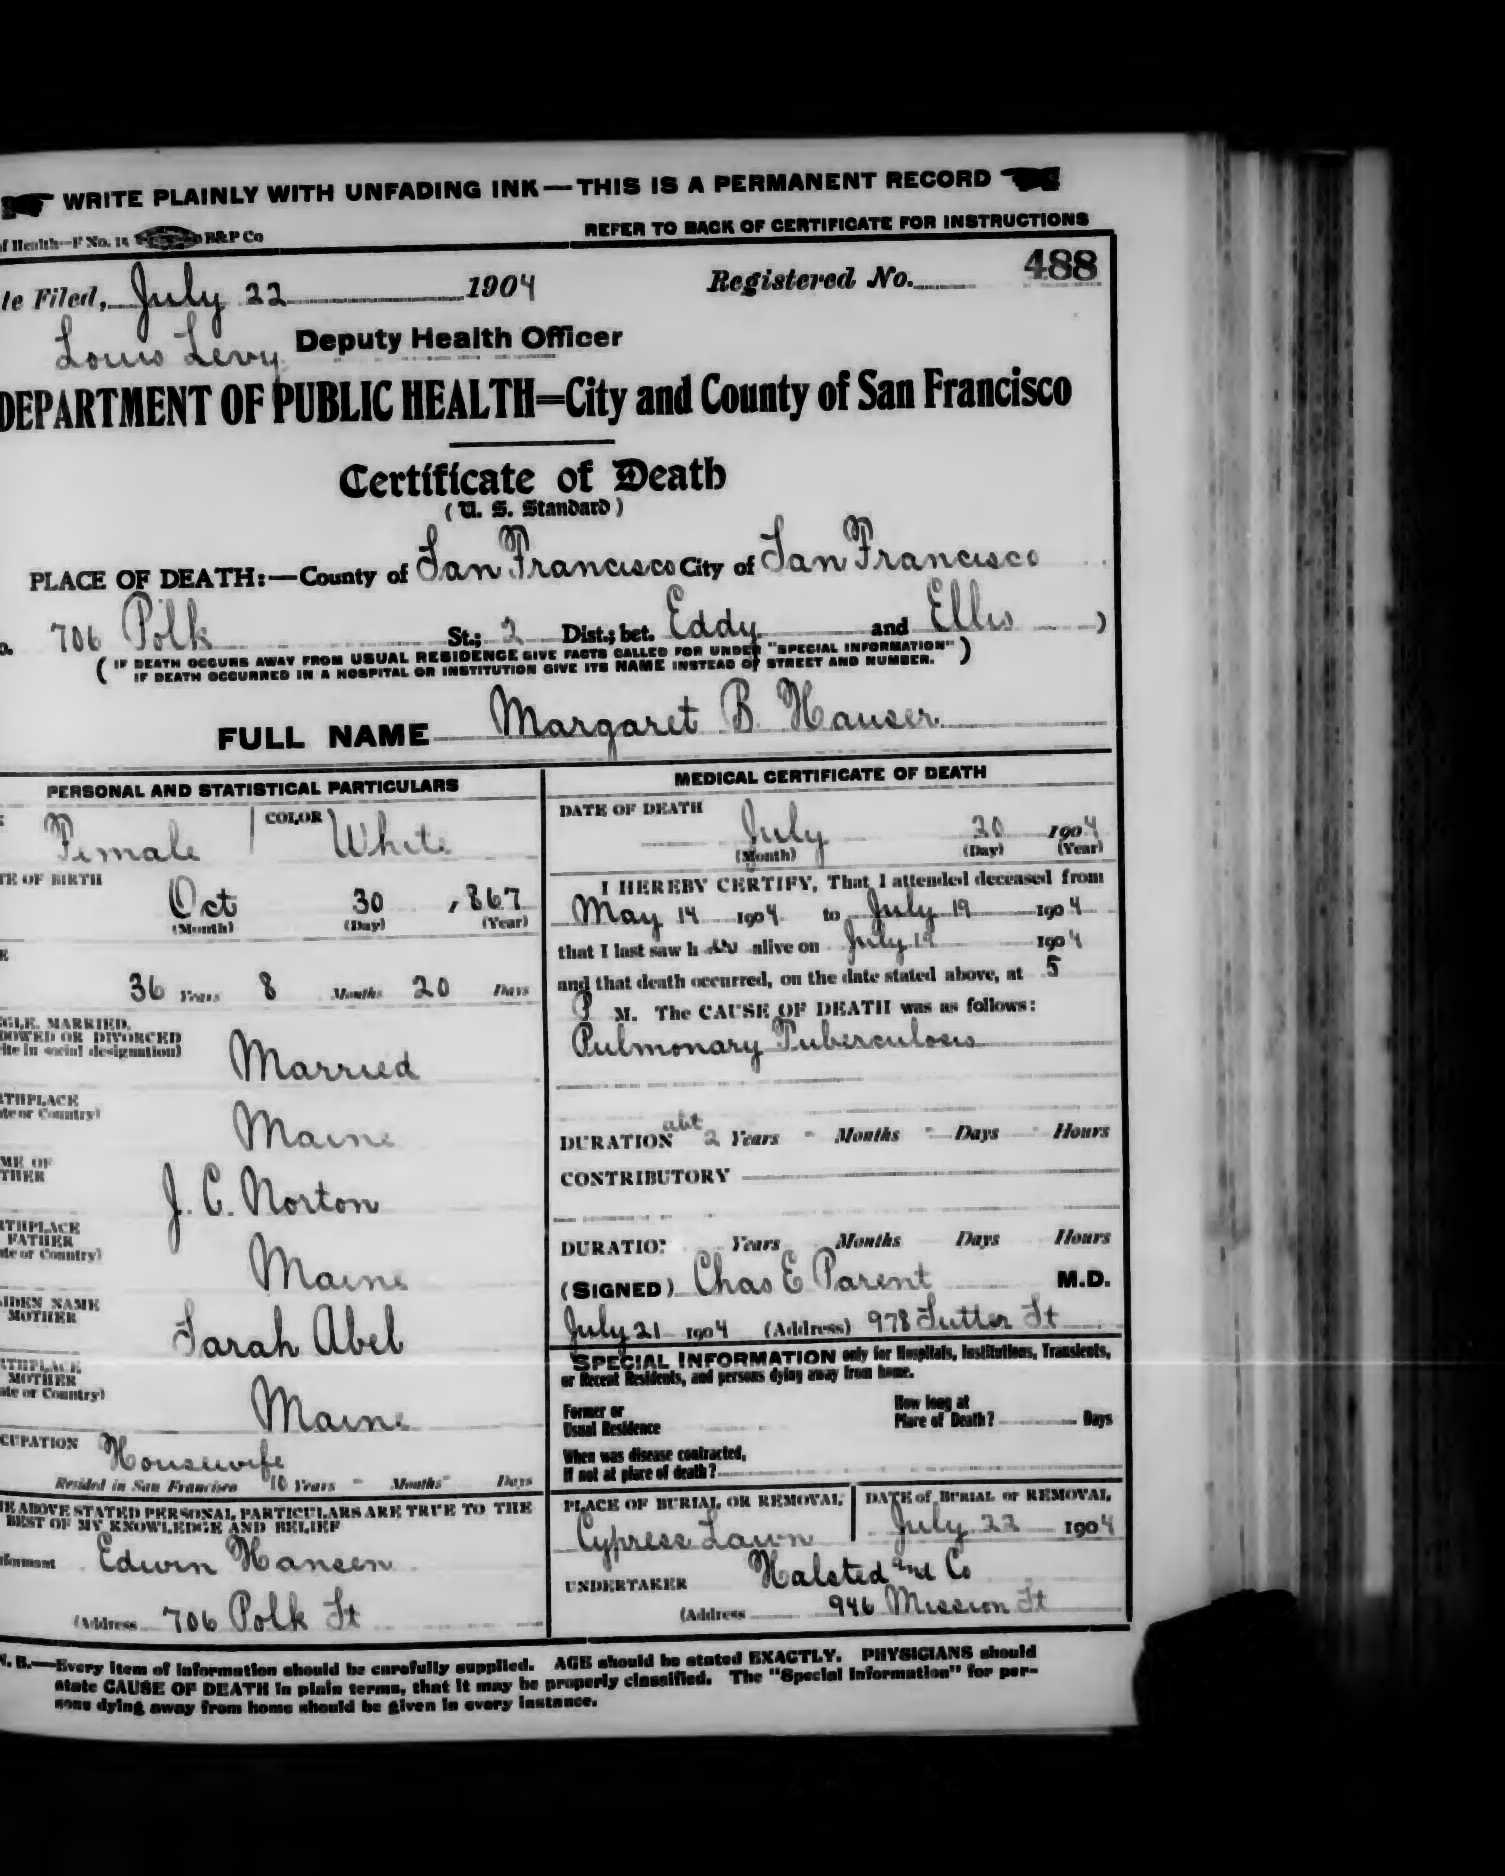 WRITE PLAINLY WITH UNFADING INK—THIS IS A PERMANENT RECORD
of Health—F No. 14 B&P Co
REFER TO BACK OF CERTIFICATE FOR INSTRUCTIONS
te Filed, July 22 1904 Registered No. 488
Louis Levy Deputy Health Officer
DEPARTMENT OF PUBLIC HEALTH=City and County of San Francisco
Certificate of Death
(U. S. Standard)
PLACE OF DEATH:—County of San Francisco City of San Francisco
o. 706 Polk St.; 2 Dist.; bet. Eddy and Ellis )
( IF DEATH OCCURS AWAY FROM USUAL RESIDENCE GIVE FACTS CALLED FOR UNDER "SPECIAL INFORMATION" )
IF DEATH OCCURRED IN A HOSPITAL OR INSTITUTION GIVE ITS NAME INSTEAD OF STREET AND NUMBER.
FULL NAME Margaret B. Hauser
PERSONAL AND STATISTICAL PARTICULARS
Female COLOR White
TE OF BIRTH
Oct 30 , 867
(Month) (Day) (Year)
E
36 Years 8 Months 20 Days
GLE, MARRIED,
DOWED OR DIVORCED
ite in social designation)
Married
THPLACE
te or Country)
Maine
ME OF
THER
J. C. Norton
THPLACE
FATHER
te or Country)
Maine
IDEN NAME
MOTHER
Sarah Abel
THPLACE
MOTHER
ate or Country)
Maine
CUPATION Housewife
Resided in San Francisco 10 Years - Months - Days
HE ABOVE STATED PERSONAL PARTICULARS ARE TRUE TO THE
BEST OF MY KNOWLEDGE AND BELIEF
formant Edwin Hansen
(Address 706 Polk St
MEDICAL CERTIFICATE OF DEATH
DATE OF DEATH
July 20 1904
(Month) (Day) (Year)
I HEREBY CERTIFY, That I attended deceased from
May 14 1904 to July 19 1904
that I last saw h er alive on July 19 1904
and that death occurred, on the date stated above, at 5
P M. The CAUSE OF DEATH was as follows:
Pulmonary Tuberculosis
DURATION abt 2 Years - Months - Days - Hours
CONTRIBUTORY
DURATION Years Months Days Hours
(SIGNED) Chas E Parent M.D.
July 21 1904 (Address) 978 Sutter St
SPECIAL INFORMATION only for Hospitals, Institutions, Transients,
or Recent Residents, and persons dying away from home.
Former or
Usual Residence
How long at
Place of Death? Days
When was disease contracted,
If not at place of death?
PLACE OF BURIAL OR REMOVAL
Cypress Lawn
DATE of BURIAL or REMOVAL
July 22 1904
UNDERTAKER Halsted and Co
(Address 946 Mission St
N. B.—Every item of information should be carefully supplied. AGE should be stated EXACTLY. PHYSICIANS should
state CAUSE OF DEATH in plain terms, that it may be properly classified. The "Special Information" for per-
sons dying away from home should be given in every instance.